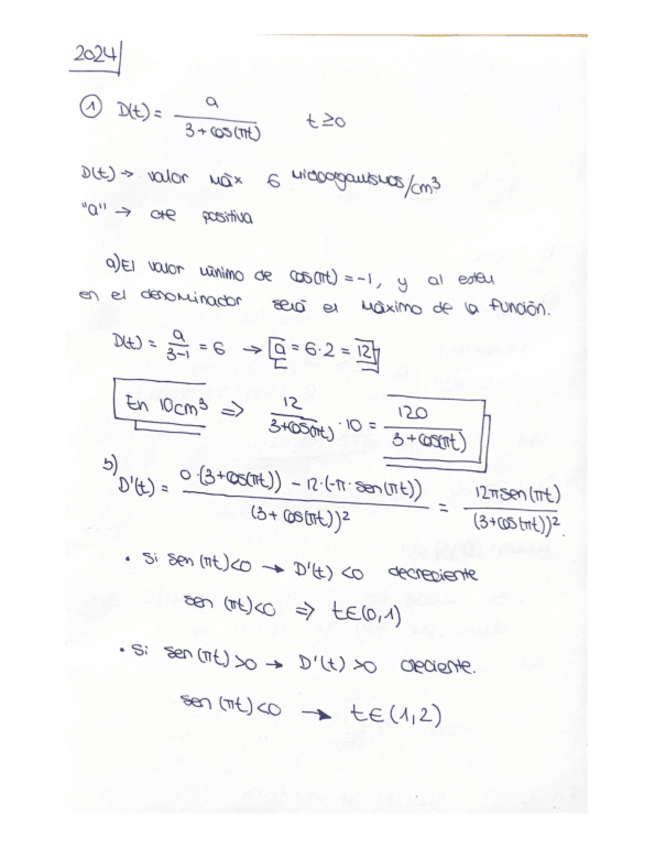 2024
① D(t) = a / (3 + cos(πt))    t ≥ 0
D(t) → valor máx 6 microorganismos/cm³
"a" → cte positiva
a) El valor mínimo de cos(πt) = -1, y al estar
en el denominador será el máximo de la función.
D(t) = a / (3-1) = 6 → a = 6·2 = 12
En 10cm³ ⇒ 12 / (3+cos(πt)) · 10 = 120 / (3+cos(πt))
b)
D'(t) = (0·(3+cos(πt)) - 12·(-π·sen(πt))) / (3+cos(πt))² = 12πsen(πt) / (3+cos(πt))².
· Si sen(πt)<0 → D'(t) <0 decreciente
sen (πt)<0 ⇒ t∈(0,1)
· Si sen(πt)>0 → D'(t) >0 creciente.
sen(πt)<0 → t∈(1,2)